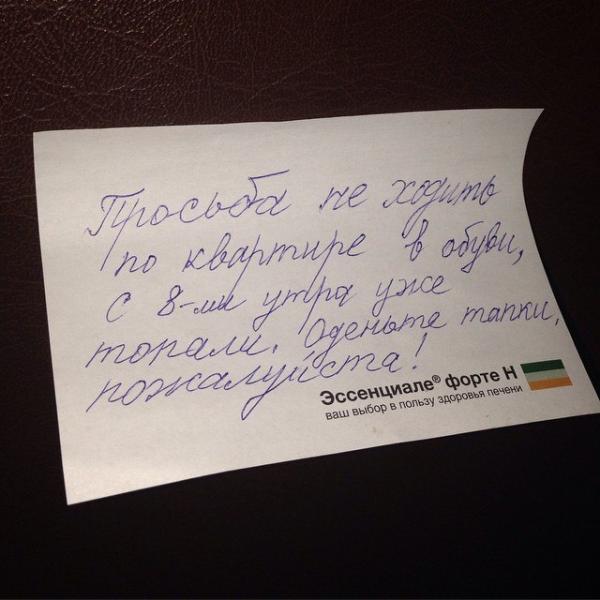 Просьба не ходить
по квартире в обуви,
с 8-ми утра уже
топали. Оденьте тапки,
пожалуйста!
Эссенциале® форте Н
ваш выбор в пользу здоровья печени